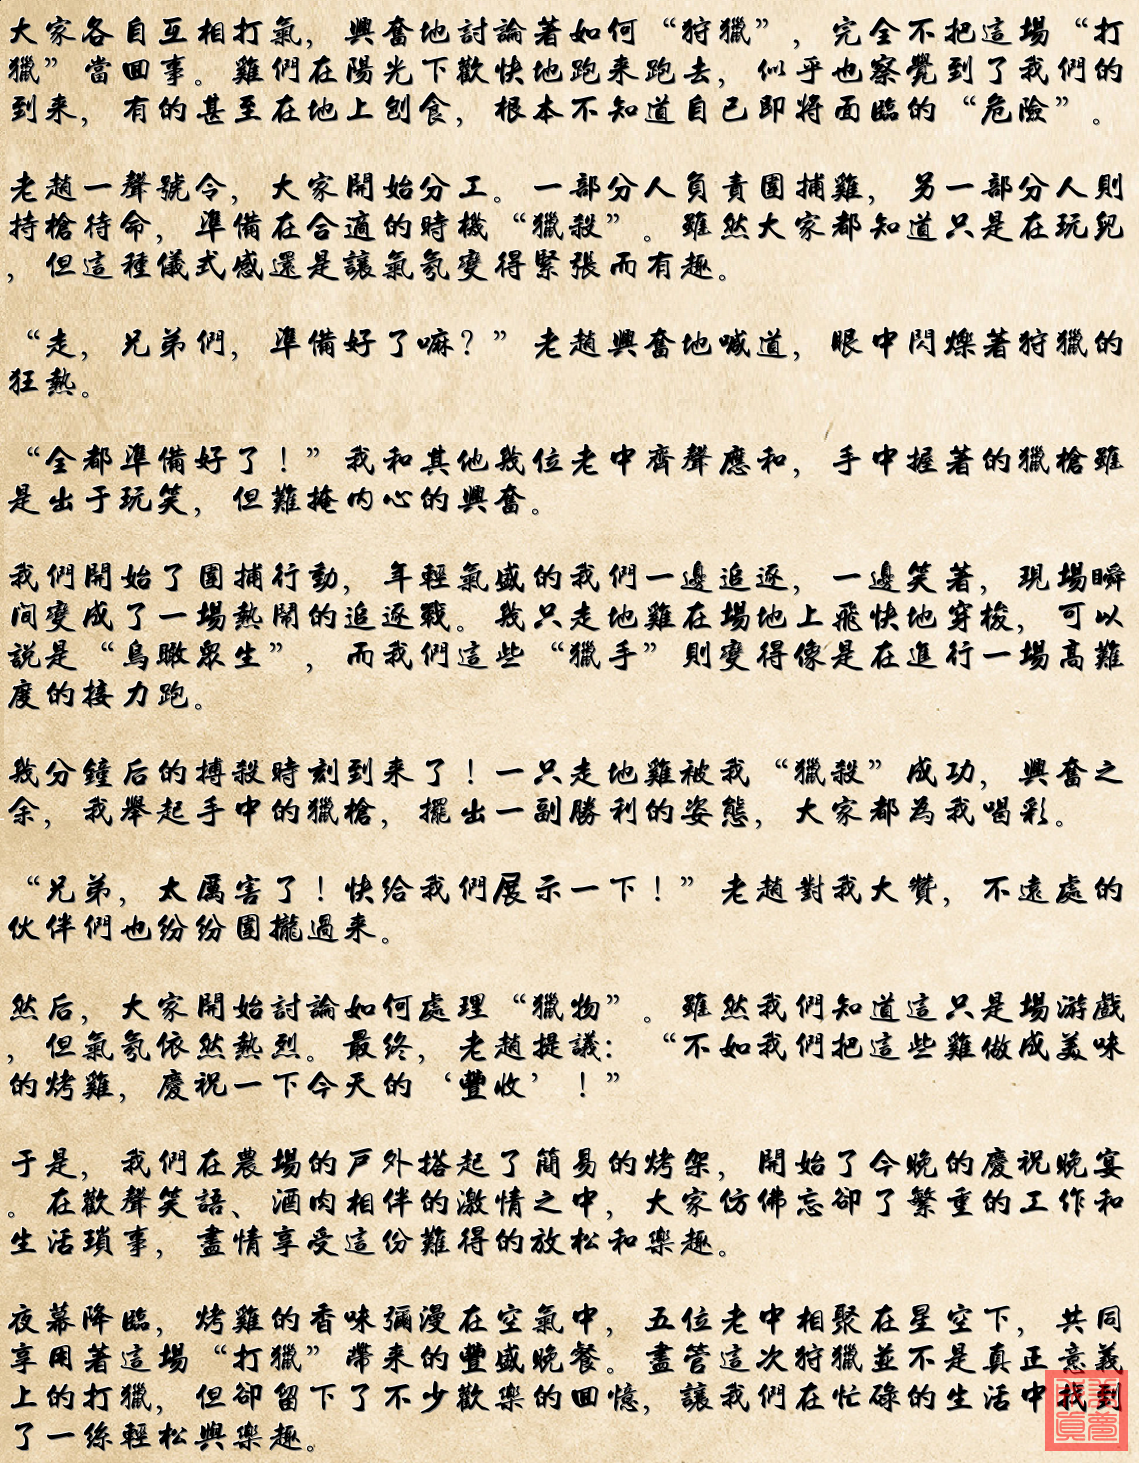 大家各自互相打氣，興奮地討論著如何“狩獵”，完全不把這場“打
獵”當回事。雞們在陽光下歡快地跑来跑去，似乎也察覺到了我們的
到来，有的甚至在地上刨食，根本不知道自己即将面臨的“危險”。
老趙一聲號令，大家開始分工。一部分人負責圍捕雞，另一部分人則
持槍待命，準備在合適的時機“獵殺”。雖然大家都知道只是在玩兒
，但這種儀式感還是讓氣氛變得緊張而有趣。
“走，兄弟們，準備好了嘛？”老趙興奮地喊道，眼中閃爍著狩獵的
狂熱。
“全都準備好了！”我和其他幾位老中齊聲應和，手中握著的獵槍雖
是出于玩笑，但難掩内心的興奮。
我們開始了圍捕行動，年輕氣盛的我們一邊追逐，一邊笑著，現場瞬
间變成了一場熱鬧的追逐戰。幾只走地雞在場地上飛快地穿梭，可以
説是“鳥瞰眾生”，而我們這些“獵手”則變得像是在進行一場高難
度的接力跑。
幾分鐘后的搏殺時刻到来了！一只走地雞被我“獵殺”成功，興奮之
余，我舉起手中的獵槍，擺出一副勝利的姿態，大家都為我喝彩。
“兄弟，太厲害了！快给我們展示一下！”老趙對我大贊，不遠處的
伙伴們也纷纷圍攏過来。
然后，大家開始討論如何處理“獵物”。雖然我們知道這只是場游戲
，但氣氛依然熱烈。最终，老趙提議：“不如我們把這些雞做成美味
的烤雞，慶祝一下今天的‘豐收’！”
于是，我們在農場的戶外搭起了簡易的烤架，開始了今晚的慶祝晚宴
。在歡聲笑語、酒肉相伴的激情之中，大家仿佛忘卻了繁重的工作和
生活瑣事，盡情享受這份難得的放松和樂趣。
夜幕降臨，烤雞的香味彌漫在空氣中，五位老中相聚在星空下，共同
享用著這場“打獵”帶来的豐盛晚餐。盡管這次狩獵並不是真正意義
上的打獵，但卻留下了不少歡樂的回憶，讓我們在忙碌的生活中找到
了一絲輕松與樂趣。